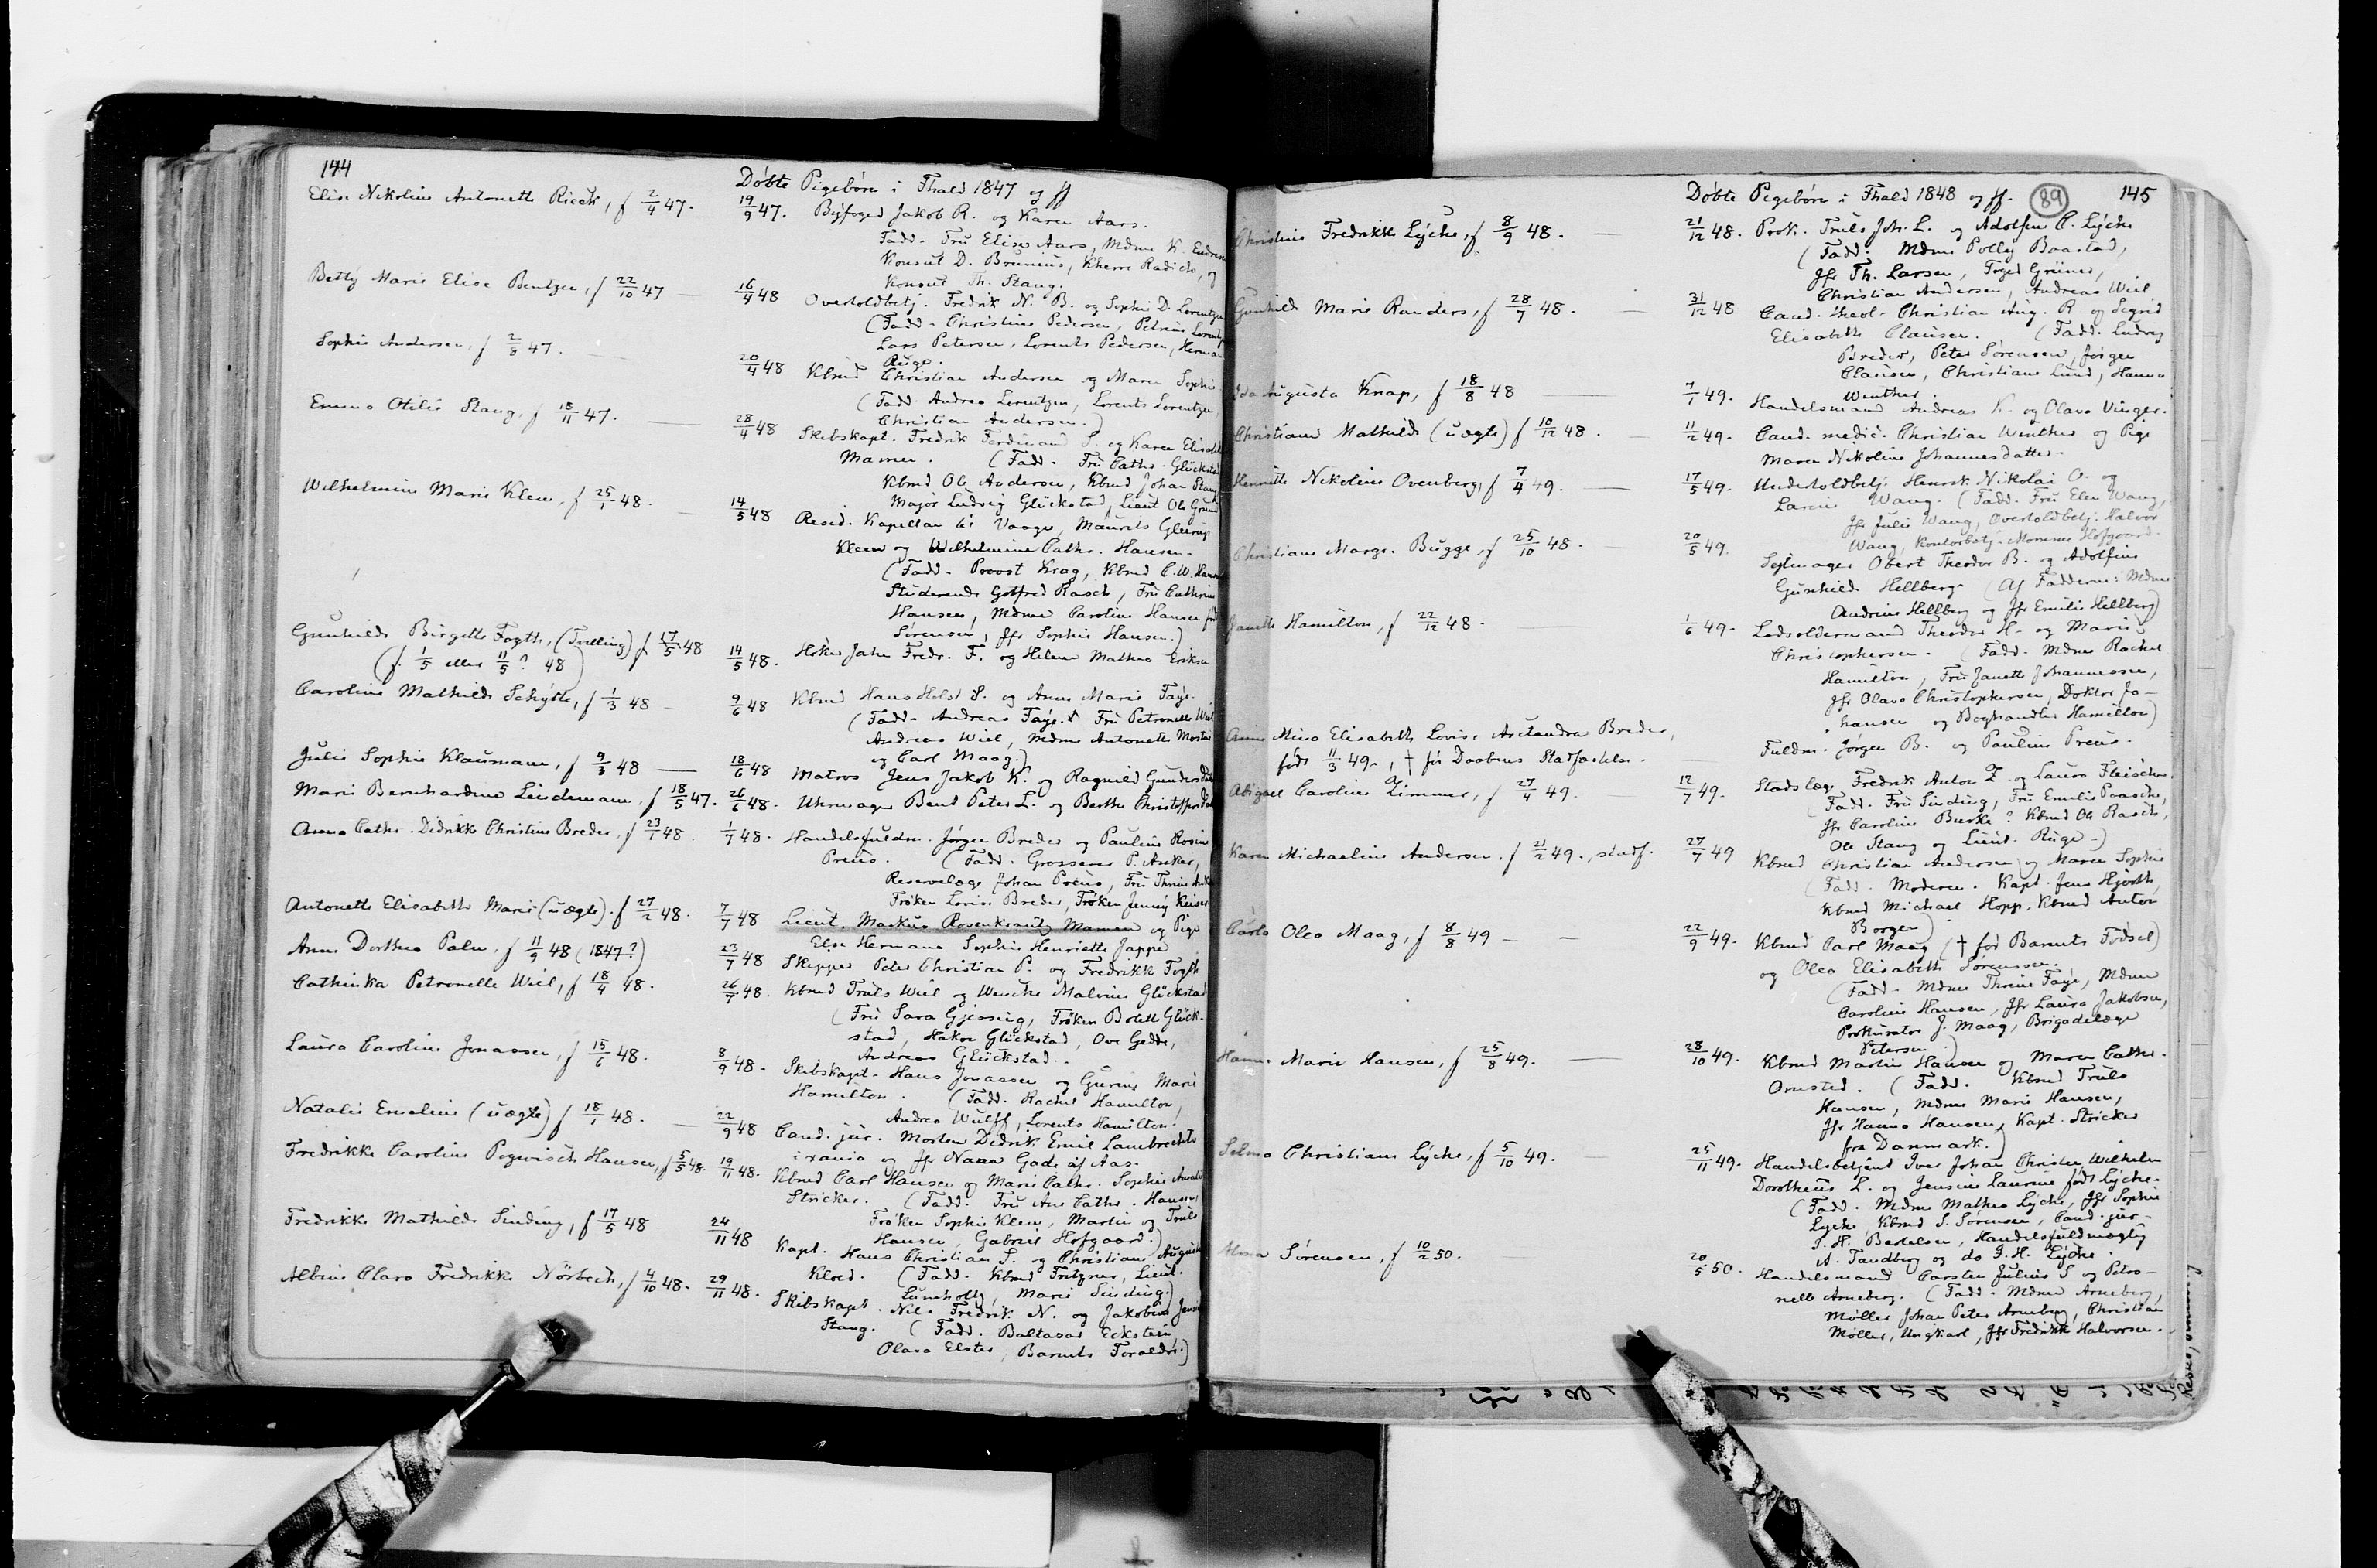 144
Døbte Pigebørn i Fhald 1847 og ff
Elise Nikoline Antonette Rieck, f 2/4 47. 19/9 47. Byfoged Jakob R. og Karen Aars.
Fadd. Fru Elise Aars, Mdme K.
Konsul D. Brunius, Kherre Radich, og
Konsul Th. Stang.
Betty Marie Elise Bentzen, f 22/10 47 — 16/4 48 Overtoldbetj. Fredrik N. B. og Sophie D. Lorentzen
(Fadd. Christine Pedersen, Petrine
Lars Petersen, Lorents Pedersen, Herman
Ruge.
Sophie Andersen, f 2/8 47. 20/4 48 Kbmd Christian Andersen og Maren Sophie
(Fadd. Andrea Lorentzen, Lorents Lorentzen,
Christian Andersen.)
Emma Otilie Stang, f 18/11 47. — 28/4 48 Skibskapt. Fredrik Ferdinand S. og Karen Elisabeth
Mamen. (Fadd. Fru Cathr. Glückstad
Kbmd Ole Andersen, Kbmd Johan Stang
Major Ludvig Glückstad, Lieut Ole
Wilhelmine Marie Klem, f 25/1 48. — 14/5 48 Resid. Kapellan til Vaage, Maurits Gleerup
Klem og Wilhelmine Cathr. Hansen.
(Fadd. Provst Krag, Kbmd C. W. Hansen
Studerende Gotfred Rasch, Fru Cathrine
Hansen, Mdme Caroline Hansen fød
Sørensen, Jfr Sophie Hansen.)
Gunhilde Birgette Fogth, (Tvilling) f 17/5 48
(f. 1/5 eller 11/5? 48) 14/5 48. Høker Jahn Fredr. F. og Helene Mathea Eriksen
Caroline Mathilde Schytte, f 1/3 48 — 9/6 48 Kbmd Hans Holst S. og Anne Marie Faye.
(Fadd. Andreas Faye. Fru Petronelle Wiel
Andreas Wiel, Mdme Antonette
og Carl Maag.)
Julie Sophie Klaumann, f 9/3 48 — 18/6 48 Matros Jens Jakob K. og Ragnild
Marie Bernhardine Lindemann, f 18/5 47. 26/6 48. Uhrmager Bent Peter L. og Berthe
Anna Cathr. Didrikke Christine Breder, f 23/1 48. 1/7 48. Handelsfuldm. Jørgen Breder og Pauline Rosine
Preus. (Fadd. Grosserer P. Anker,
Reservelæge Johan Preus, Fru Thrine
Frøken Lovise Breder, Frøken Jenny
Antonette Elisabeth Marie (uægte). f 27/2 48. 7/7 48 Lieut. Markus Rosenkrantz Mamen og Pige
Else Hermane Sophie Henriette Jappe
Anne Dorthea Palm, f 11/9 48 (1847?) 23/7 48 Skipper Peter Christian P. og Fredrikke Fogth
Cathinka Petronelle Wiel, f 18/4 48. 26/7 48. Kbmd Truls Wiel og Wenche Malvine Glückstad
(Fru Sara Gjessing, Frøken Bolett Glück-
stad, Hakon Glückstad, Ove Gedde,
Andreas Glückstad.
Laura Caroline Jonassen, f 15/6 48. 8/9 48. Skibskapt. Hans Jonassen og Gurine Marie
Hamilton. (Fadd. Rachel Hamilton,
Andrea Wulff, Lorents Hamilton.
Natalie Emeline (uægte) f 18/1 48. — 22/9 48 Cand. jur. Morten Didrik Emil Lambrechts
i xania og Jfr Nanna Gade af Aas.
Fredrikke Caroline Pogwisch Hansen, f 5/5 48. 19/11 48. Kbmd Carl Hansen og Marie Cathr. Sophie
Stricker. (Fadd. Fru Ane Cathr. Hansen
Frøken Sophie Klem, Martin og Truls
Hansen, Gabriel Hofgaard.)
Fredrikke Mathilde Sinding, f 17/5 48 24/11 48 Kapt. Hans Christian S. og Christiane Augusta
Kloed. (Fadd. Kbmd Fritzner, Lieut.
Lumholtz, Marie Sinding.)
Albine Clara Fredrikke Nørbech, f 4/10 48. 29/11 48. Skibskapt. Nils Fredrik N. og Jakobine
Stang. (Fadd. Baltasar Eckstein
Olava Elster, Barnets Forældre.)
Døbte Pigebørn i Fhald 1848 og ff. 89 145
Christine Fredrikke Lyche, f 8/9 48. — 21/12 48. Prok. Truls Joh. L. og Adolfine C. Lyche
(Fadd. Mdme Polly Baastad,
Jfr Th. Larsen, Foged Grüner,
Christian Andersen, Andreas Wiel
Gunhild Marie Randers, f 28/7 48. — 31/12 48 Cand. theol. Christian Aug. R og Sigrid
Elisabeth Clausen. (Fadd. Ludvig
Breder, Peter Sørensen, Jørgen
Clausen, Christiane Lund, Hanna
Winther.
Ida Augusta Knap, f 18/8 48 — 7/1 49. Handelsmand Andreas K. og Olava Vinger.
Christiane Mathilde (uægte) f 10/12 48. 11/2 49. Cand. medic. Christian Winther og Pige
Maren Nikoline Johannesdatter.
Henriette Nikoline Ovenberg, f 7/4 49. — 17/5 49. Undertoldbetj. Henrik Nikolai O. og
Larine Wang. (Fadd. Fru Elen Wang,
Jfr Julie Wang, Overtoldbetj. Halvor
Wang, Kontorbetj. Momme Hofgaard.
Christiane Margr. Bugge, f 25/10 48. — 20/5 49. Sejlmager Obert Theodor B. og Adolfine
Gunhilde Hellberg. (Af Fadderne: Mdme
Andrine Hellberg og Jfr Emilie Hellberg)
Janette Hamilton, f 22/12 48. 1/6 49. Lodsoldermand Theodor H. og Marie
Christophersen. (Fadd. Mdme Rachel
Hamilton, Fru Janett Johannesen,
Jfr Olava Christophersen, Doktor Jo-
hansen og Boghandler Hamilton)
Anne Mina Elisabeth Lovise Alexandra Breder,
født 11/3 49, † før Daabens Stadfæstelse. Fuldm. Jørgen B. og Pauline Preus.
Abigael Caroline Zimmer, f 27/4 49. — 12/7 49. Stadslæge Fredrik Anton Z. og Laura Fleischer.
(Fadd. Fru Sinding, Fru Emilie Paasche,
Jfr Caroline Burke? Kbmd Ole Rasch,
Ole Stang og Lieut. Ruge.)
Karen Michaeline Andersen. f 21/2 49., stadf. 27/7 49 Kbmd Christian Andersen og Maren Sophie
(Fadd. Moderen. Kapt. Jens Hjorth,
Kbmd Michael Hopp, Kbmd Anton
Borgen)
Carla Olea Maag, f 8/8 49 — — 22/9 49. Kbmd Carl Maag († før Barnets Fødsel)
og Olea Elisabeth Sørensen.
(Fadd. Mdme Thrine Faye, Mdme
Caroline Hansen, Jfr Laura Jakobsen,
Prokurator J. Maag, Brigadelæge
Petersen.)
Hanne Marie Hansen, f 25/8 49. — 28/10 49. Kbmd Martin Hansen og Maren Cathr.
Ornsted. (Fadd. Kbmd Truls
Hansen, Mdme Marie Hansen,
Jfr Hanna Hansen, Kapt. Stricker
fra Danmark.)
Selma Christiane Lyche, f 5/10 49. 25/11 49. Handelsbetjent Iver Johan Christen Wilhelm
Dorotheus L. og Jensine Laurine født Lyche.
(Fadd. Mdme Mathea Lyche, Jfr Sophie
Lyche, Kbmd S. Sørensen, Cand. jur.
J. H. Bertelsen, Handelsfuldmægtig
A. Tandberg og do J. H. Lyche.
Alma Sørensen, f 10/2 50. 20/5 50. Handelsmand Carsten Julius S og Petro-
nelle Arneberg. (Fadd. Mdme Arneberg,
Møller Johan Peter Arneberg, Christian
Møller, Ungkarl, Jfr Fredrikke Halvorsen.